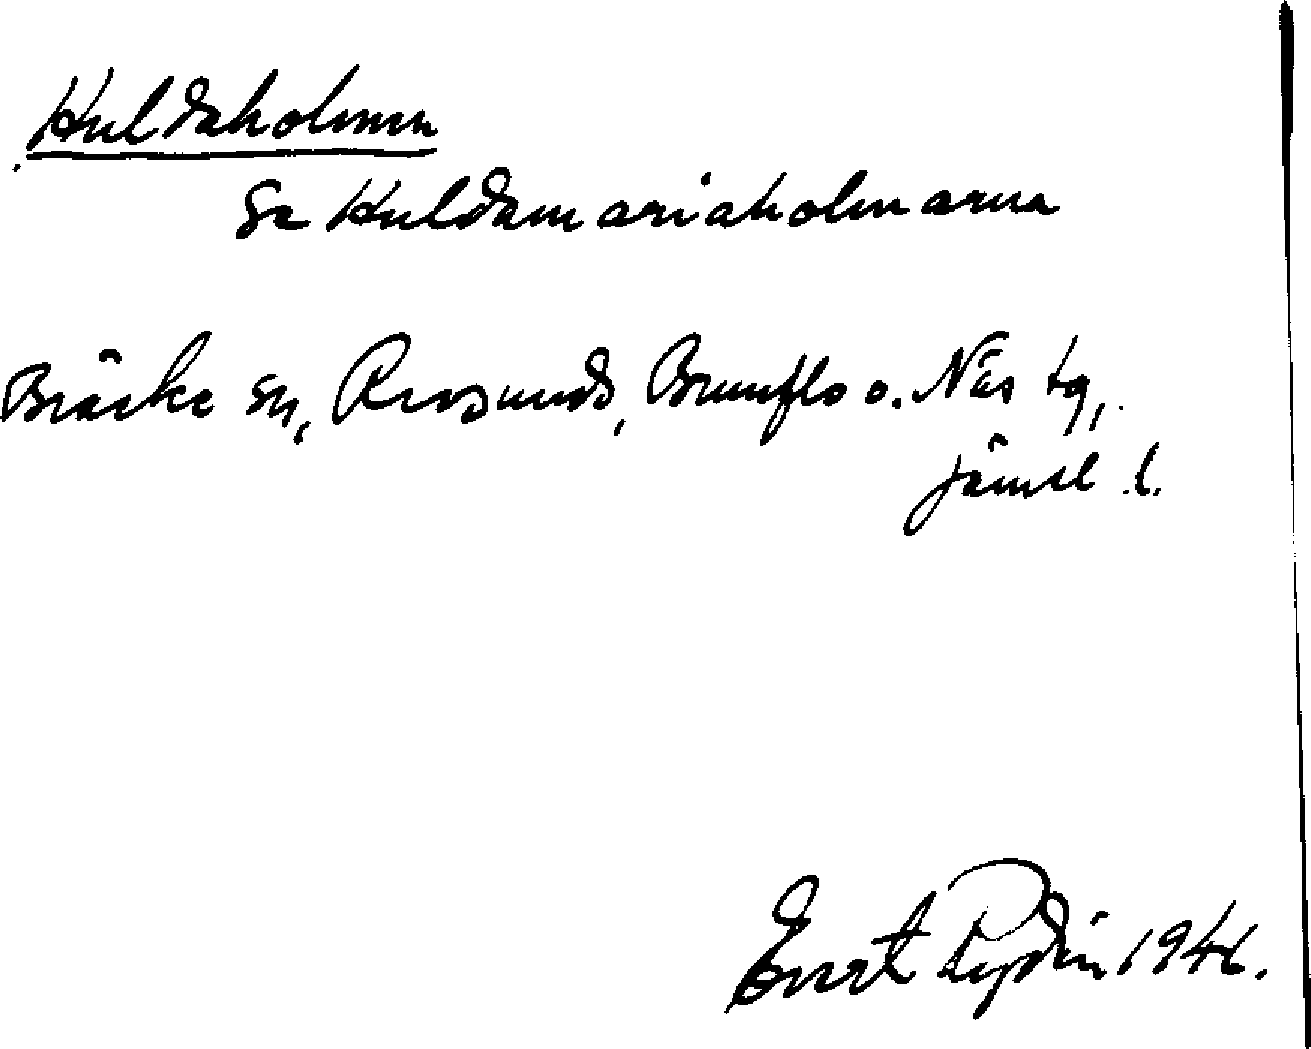 Huldaholmen
Se Huldamariaholmarna
Bräcke sn, Revsunds, Brunflo o. Näs tg,
Jämtl l.
Evert Rydin 1941.